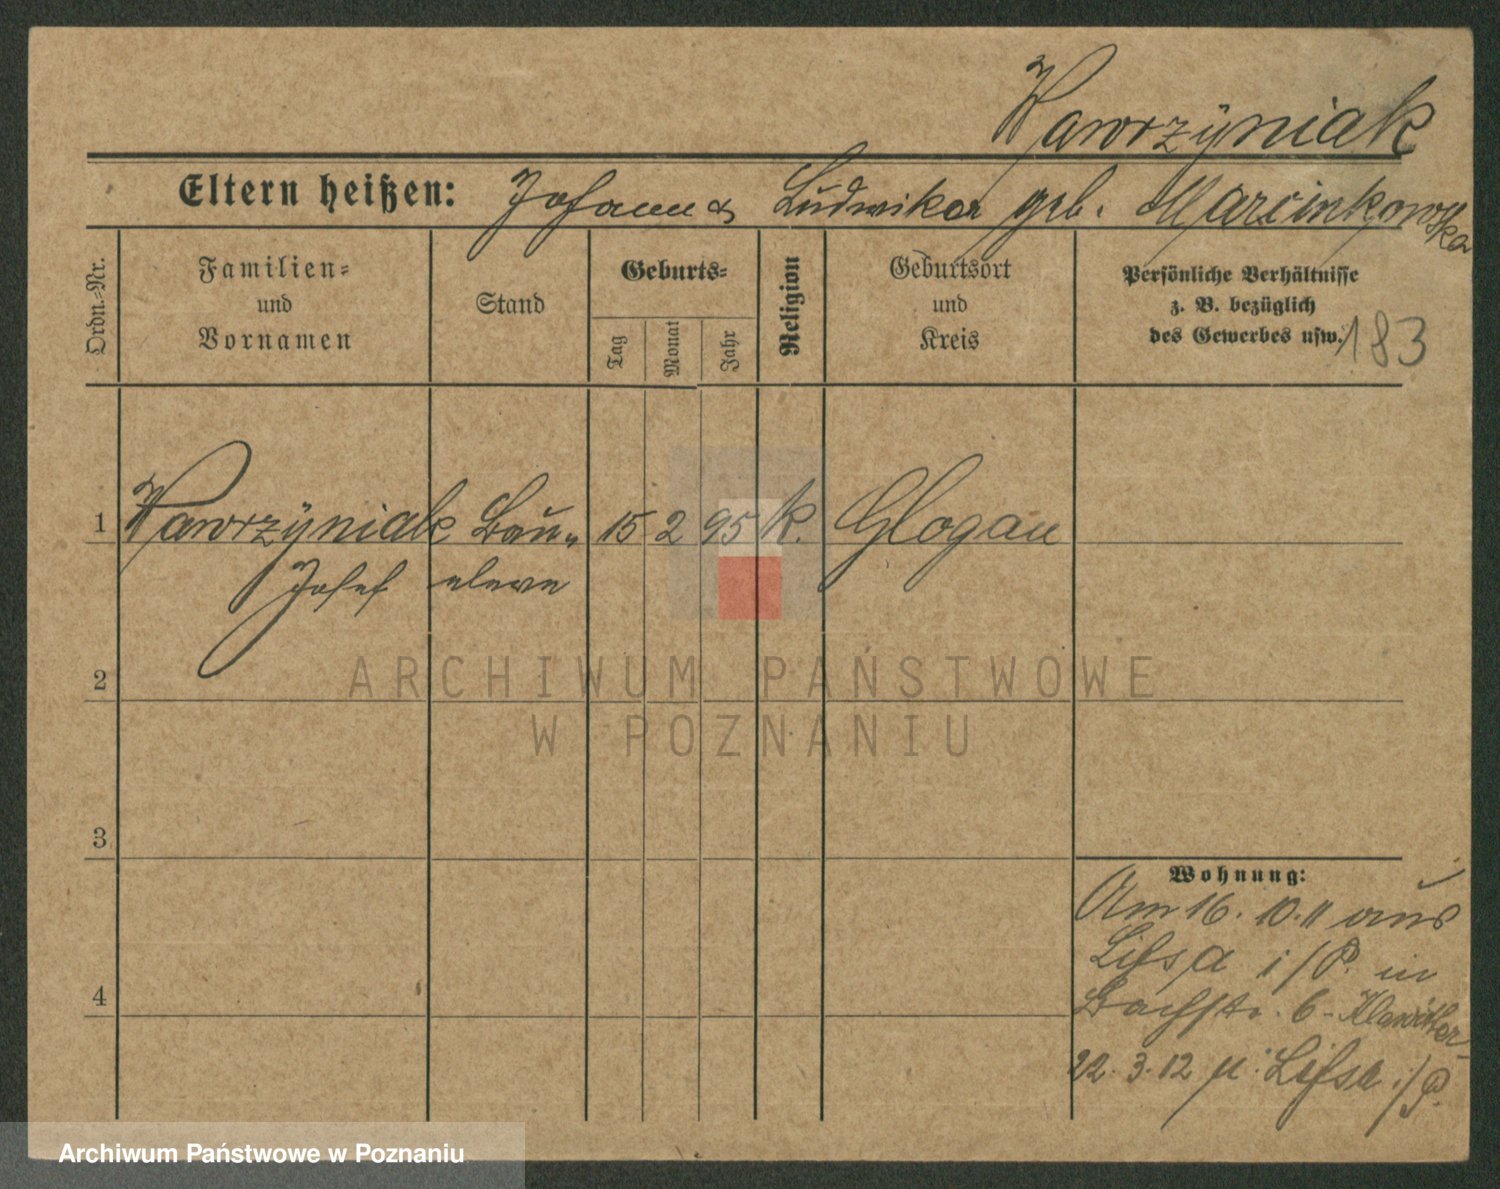 Wawrzyniak
Eltern heißen: Johann & Ludwika geb. Marcinkowska
Ordn.-Nr.
Familien-
und
Vornamen
Stand
Geburts-
Tag
Monat
Jahr
Religion
Geburtsort
und
Kreis
Persönliche Verhältnisse
z. B. bezüglich
des Gewerbes usw.
183
1 Wawrzyniak Bau- 15 2 95 k. Glogau
Josef eleve
2
3
4
Wohnung:
Am 16. 10. 11 aus
Lissa i/P. in
Bachstr. 6 - Klawitter
22. 3. 12 n. Lissa i/P.
ARCHIWUM PAŃSTWOWE
W POZNANIU
Archiwum Państwowe w Poznaniu